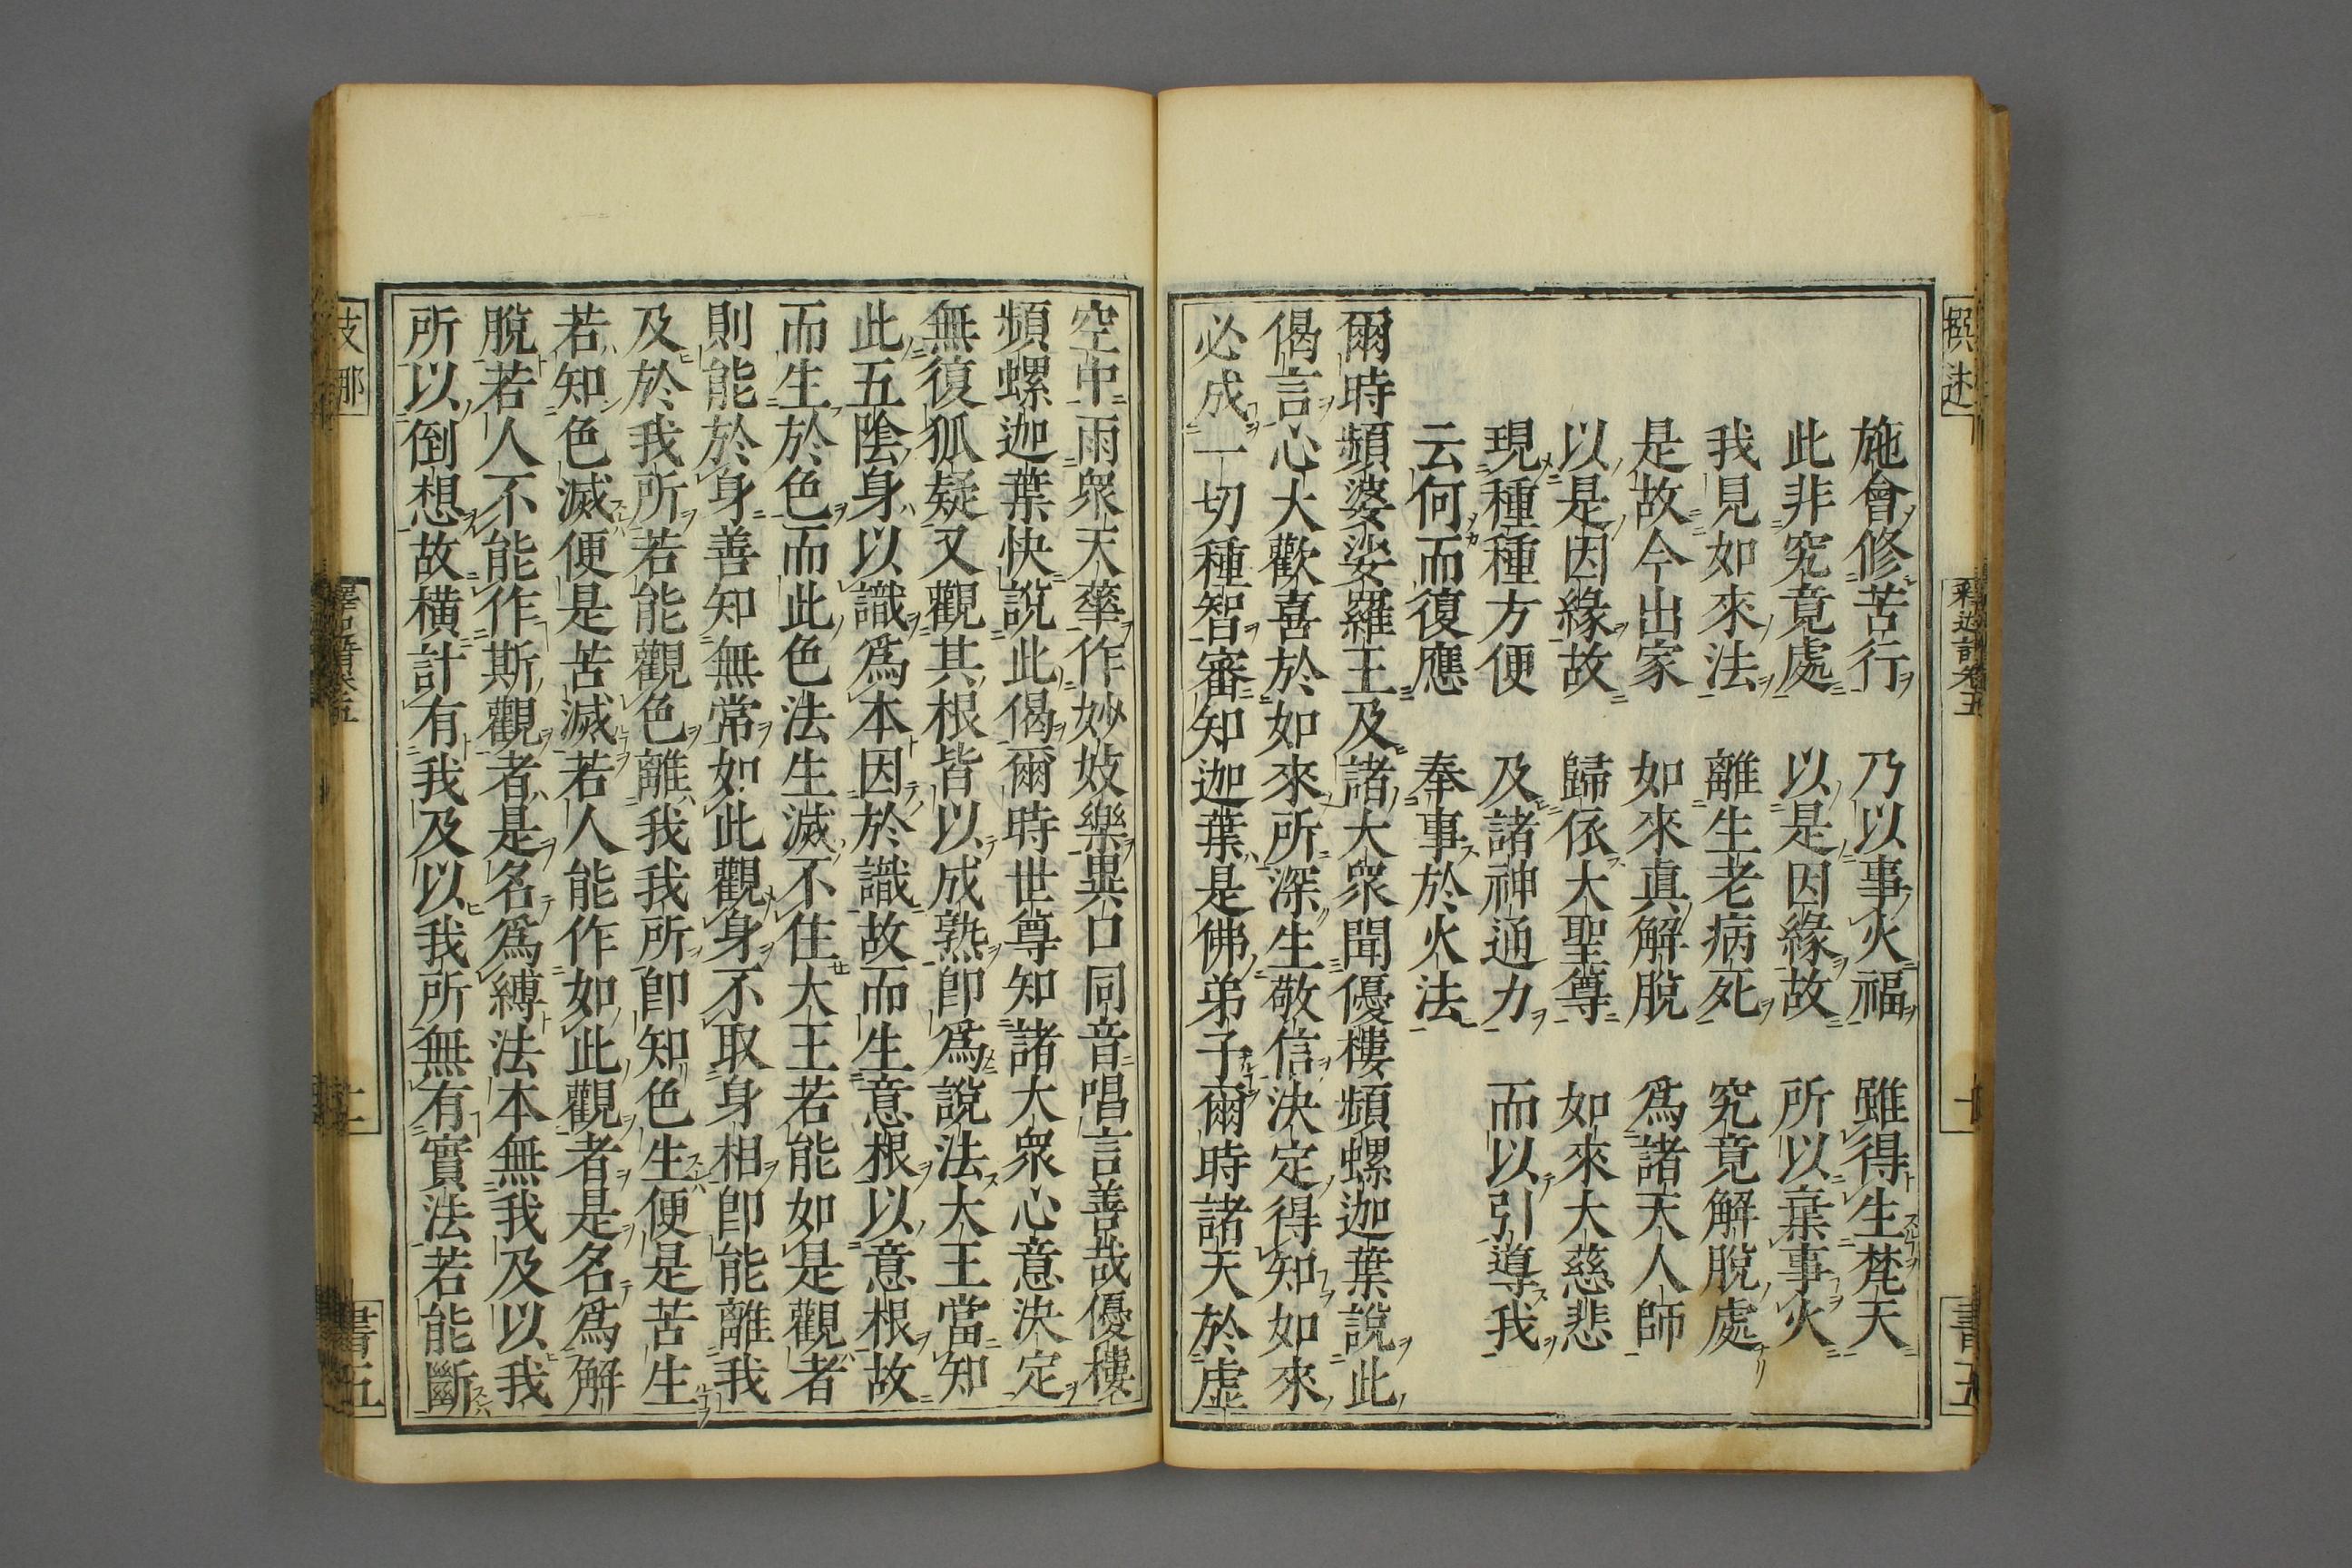 施會修苦行　乃以事火福　雖得生梵天
此非究竟處　以是因緣故　所以棄事火
我見如來法　離生老病死　究竟解脫處
是故今出家　如來真解脫　為諸天人師
以是因緣故　歸依大聖尊　如來大慈悲
現種種方便　及諸神通力　而以引導我
云何而復應　奉事於火法
爾時頻婆娑羅王及諸大眾聞優樓頻螺迦葉說此
偈言心大歡喜於如來所深生敬信決定得知如來
必成一切種智審知迦葉是佛弟子爾時諸天於虛
空中雨眾天華作妙妓樂異口同音唱言善哉優樓
頻螺迦葉快說此偈爾時世尊知諸大眾心意決定
無復狐疑又觀其根皆以成熟即為說法大王當知
此五陰身以識為本因於識故而生意根以意根故
而生於色而此色法生滅不住大王若能如是觀者
則能於身善知無常如此觀身不取身相即能離我
及於我所若能觀色離我我所即知色生便是苦生
若知色滅便是苦滅若人能作如此觀者是名為解
脫若人不能作斯觀者是名為縛法本無我及以我
所以倒想故橫計有我及以我所無有實法若能斷